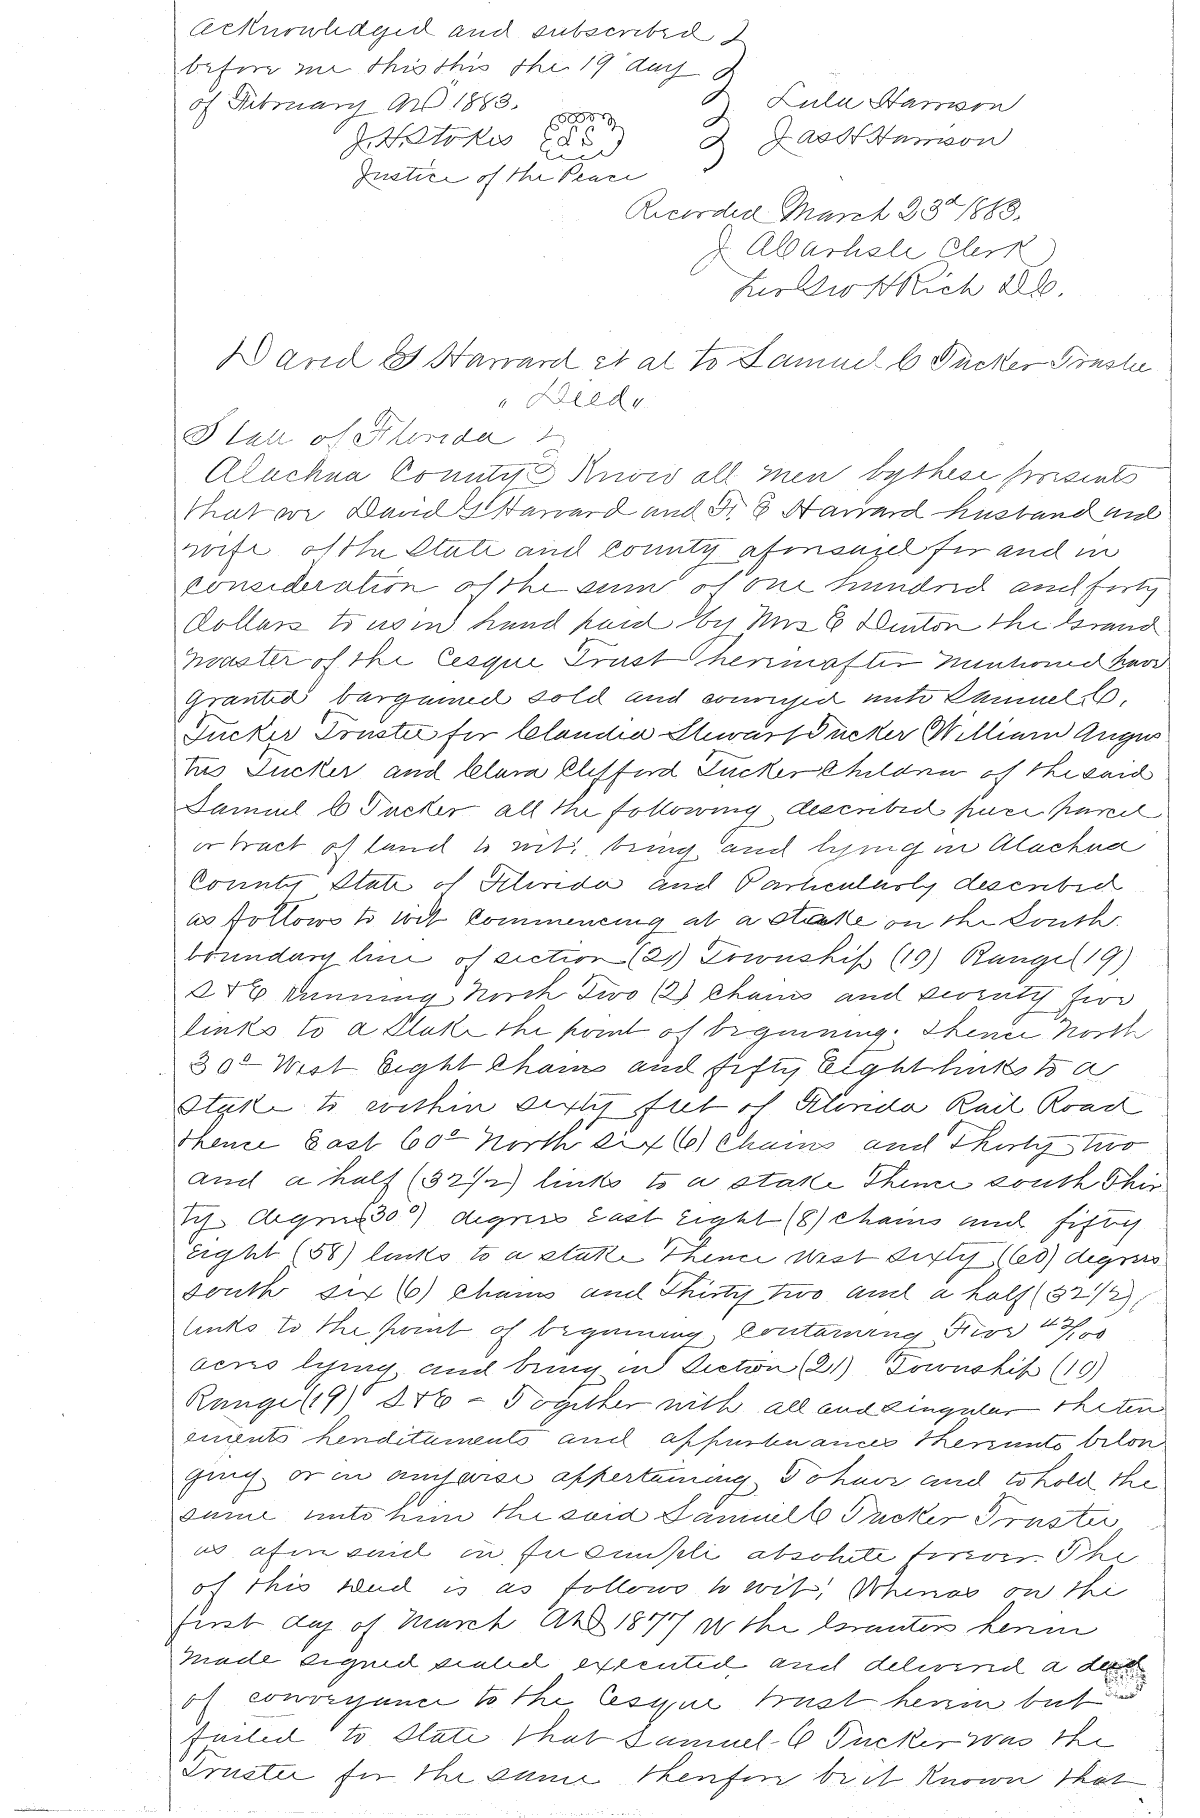 Acknowledged and subscribed
before me this this the 19" day
of February AD 1883.
Lula Harrison
J. H. Stokes
Jas H Harrison
Justice of the Peace
Recorded March 23d 1883.
J A Carlisle Clerk
Per Geo H Rich D.C.
David G Harvard et al to Samuel C Tucker Trustee
"Deed"
State of Florida
Alachua County Know all men by these presents
that we David G Harvard and F. E Harvard husband and
wife of the State and County aforesaid for and in
consideration of the sum of one hundred and forty
dollars to us in hand paid by Mrs E Denton the Grand
Mother of the Cesque Trust hereinafter mentioned have
granted bargained sold and conveyed unto Samuel C.
Tucker Trustee for Claudia Stewart Tucker William Augus
tus Tucker and Clara Clifford Tucker Children of the said
Samuel C Tucker all the following described piece parcel
or tract of land to wit: being and lying in Alachua
County State of Florida and Particularly described
as follows to wit Commencing at a stake on the South
boundary line of section (21) Township (10) Range (19)
S & E running North Two (2) Chains and seventy five
links to a Stake the point of beginning. thence North
30° West Eight Chains and fifty Eight links to a
Stake to within sixty feet of Florida Rail Road
thence East 60° North six (6) Chains and Thirty two
and a half (32 1/2) links to a stake Thence south Thir
ty degrees (30°) degrees East Eight (8) chains and fifty
eight (58) links to a stake thence West Sixty (60) degrees
south six (6) chains and Thirty two and a half (32 1/2)
links to the point of beginning, Containing Five 42/100
acres lying and being in Section (21) Township (10)
Range (19) S & E - Together with all and singular the ten
ements heriditaments and appurtenances thereunto belon
ging or in anywise appertaining To have and to hold the
same unto him the said Samuel C Tucker Trustee
as afore said in fee simple absolute forever. The
of this deed is as follows to wit; Whereas on the
first day of March AD 1877 we the Grantors herein
made signed sealed executed and delivered a deed
of conveyance to the Cesque trust herein but
failed to State that Samuel C Tucker was the
Trustee for the same therefore be it Known that